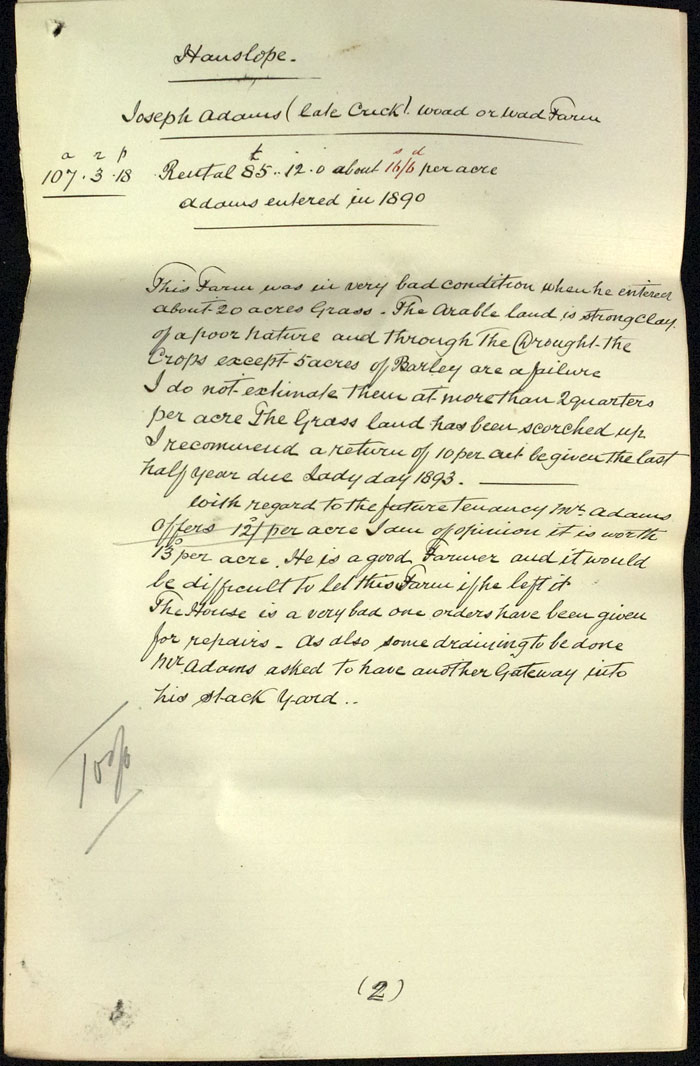 Hanslope.
Joseph Adams (late Crick). Woad or Wad Farm
a r p
107.3.18 Rental £85..12.0 about 16/6 per acre
s d
Adams entered in 1890
This Farm was in very bad condition when he entered
about 20 acres Grass. The Arable land is strong clay.
of a poor nature and through The Drought the
Crops except 5 acres of Barley are a failure
I do not estimate them at more than 2 quarters
per acre The Grass land has been scorched up
I recommend a return of 10 per cent be given the last
half year due Lady day 1893.
With regard to the future tenancy Mr. Adams
offers 12/ per acre I am of opinion it is worth
13 per acre. He is a good Farmer and it would
be difficult to let this Farm if he left it
The House is a very bad one orders have been given
for repairs - As also some draining to be done
Mr. Adams asked to have another Gateway into
his stack Yard..
(2)